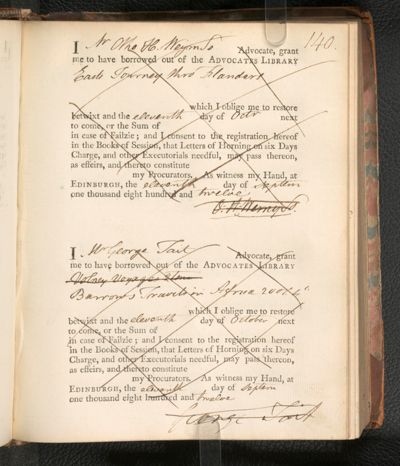 140.
I Mr Otho H. Wemyss Advocate, grant
me to have borrowed out of the ADVOCATES LIBRARY
Eads Journey thro' Flanders
which I oblige me to restore
betwixt and the eleventh day of Octr next
to come, or the Sum of
in case of Failzie; and I consent to the registration hereof
in the Books of Session, that Letters of Horning on six Days
Charge, and other Executorials needful, may pass thereon,
as effeirs, and thereto constitute
my Procurators. As witness my Hand, at
EDINBURGH, the eleventh day of Septem
one thousand eight hundred and twelve
O. H. Wemyss.
I Mr George Tait Advocate, grant
me to have borrowed out of the ADVOCATES LIBRARY
Volney Voyage
Barrow's Travels in Africa 2 vols 4o
which I oblige me to restore
betwixt and the eleventh day of October next
to come, or the Sum of
in case of Failzie; and I consent to the registration hereof
in the Books of Session, that Letters of Horning on six Days
Charge, and other Executorials needful, may pass thereon,
as effeirs, and thereto constitute
my Procurators. As witness my Hand, at
EDINBURGH, the eleventh day of Septem
one thousand eight hundred and twelve
George Tait